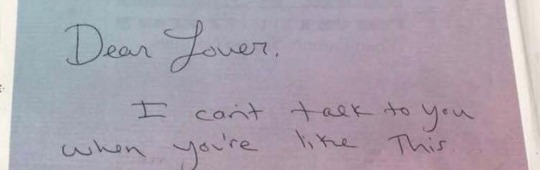 Dear Lover.
I can't talk to you
when you're like This